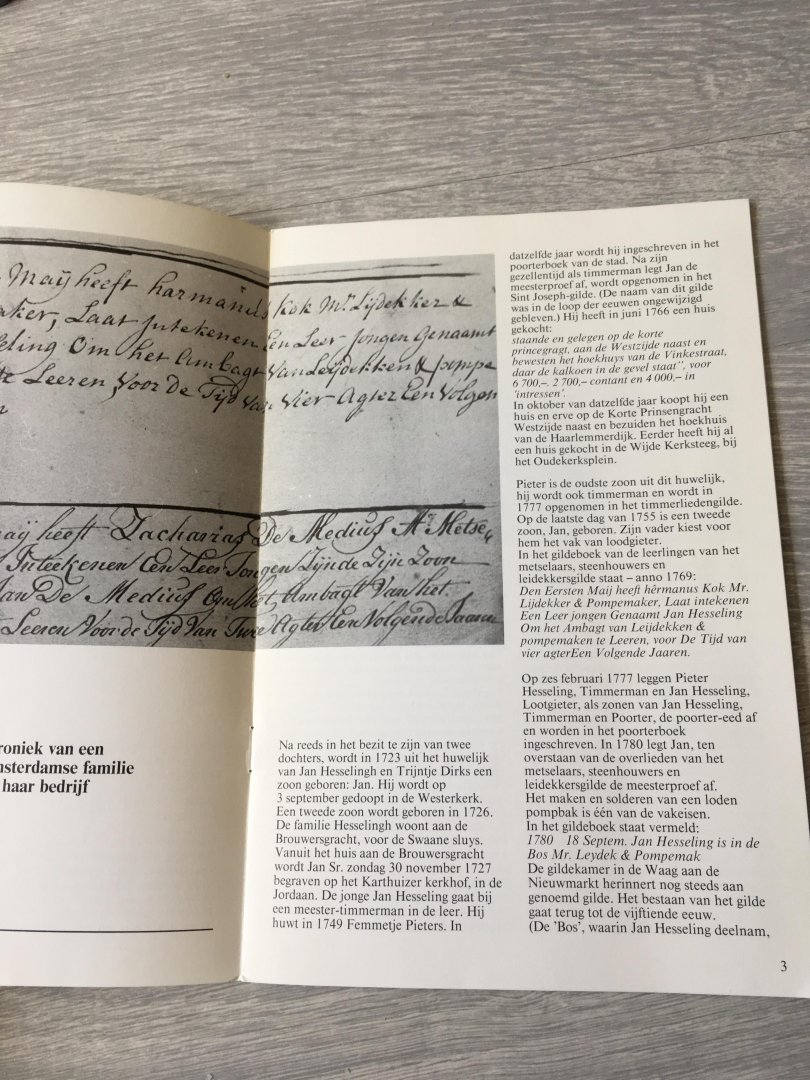 Maÿ heeft harmanus Kok Mr. Lijdekker &
aker, Laat Intekenen Een Leer Jongen Genaamt
eling Om het Ambagt Van Leijdekken & pompe
te Leeren, Voor De Tijd Van Vier Agter Een Volgen
n
maij heeft Zacharias De Medius Mr. Metse
Inteekenen Een Leer Jongen Zijnde Zijn Zoon
Jan De Medius Om het Ambagt Van het
Leeren Voor de Tijd Van Twee Agter Een Volgende Jaaren
roniek van een
nsterdamse familie
haar bedrijf
Na reeds in het bezit te zijn van twee
dochters, wordt in 1723 uit het huwelijk
van Jan Hesselingh en Trijntje Dirks een
zoon geboren: Jan. Hij wordt op
3 september gedoopt in de Westerkerk.
Een tweede zoon wordt geboren in 1726.
De familie Hesselingh woont aan de
Brouwersgracht, voor de Swaane sluys.
Vanuit het huis aan de Brouwersgracht
wordt Jan Sr. zondag 30 november 1727
begraven op het Karthuizer kerkhof, in de
Jordaan. De jonge Jan Hesseling gaat bij
een meester-timmerman in de leer. Hij
huwt in 1749 Femmetje Pieters. In
datzelfde jaar wordt hij ingeschreven in het
poorterboek van de stad. Na zijn
gezellentijd als timmerman legt Jan de
meesterproef af, wordt opgenomen in het
Sint Joseph-gilde. (De naam van dit gilde
was in de loop der eeuwen ongewijzigd
gebleven.) Hij heeft in juni 1766 een huis
gekocht:
staande en gelegen op de korte
princegragt, aan de Westzijde naast en
bewesten het hoekhuys van de Vinkestraat,
daar de kalkoen in de gevel staat", voor
6 700,–. 2 700,– contant en 4 000,– in
'intressen'.
In oktober van datzelfde jaar koopt hij een
huis en erve op de Korte Prinsengracht
Westzijde naast en bezuiden het hoekhuis
van de Haarlemmerdijk. Eerder heeft hij al
een huis gekocht in de Wijde Kerksteeg, bij
het Oudekerksplein.
Pieter is de oudste zoon uit dit huwelijk,
hij wordt ook timmerman en wordt in
1777 opgenomen in het timmerliedengilde.
Op de laatste dag van 1755 is een tweede
zoon, Jan, geboren. Zijn vader kiest voor
hem het vak van loodgieter.
In het gildeboek van de leerlingen van het
metselaars, steenhouwers en
leidekkersgilde staat – anno 1769:
Den Eersten Maij heeft hêrmanus Kok Mr.
Lijdekker & Pompemaker, Laat intekenen
Een Leer jongen Genaamt Jan Hesseling
Om het Ambagt van Leijdekken &
pompemaken te Leeren, voor De Tijd van
vier agterEen Volgende Jaaren.
Op zes februari 1777 leggen Pieter
Hesseling, Timmerman en Jan Hesseling,
Lootgieter, als zonen van Jan Hesseling,
Timmerman en Poorter, de poorter-eed af
en worden in het poorterboek
ingeschreven. In 1780 legt Jan, ten
overstaan van de overlieden van het
metselaars, steenhouwers en
leidekkersgilde de meesterproef af.
Het maken en solderen van een loden
pompbak is één van de vakeisen.
In het gildeboek staat vermeld:
1780 18 Septem. Jan Hesseling is in de
Bos Mr. Leydek & Pompemak
De gildekamer in de Waag aan de
Nieuwmarkt herinnert nog steeds aan
genoemd gilde. Het bestaan van het gilde
gaat terug tot de vijftiende eeuw.
(De 'Bos', waarin Jan Hesseling deelnam,
3